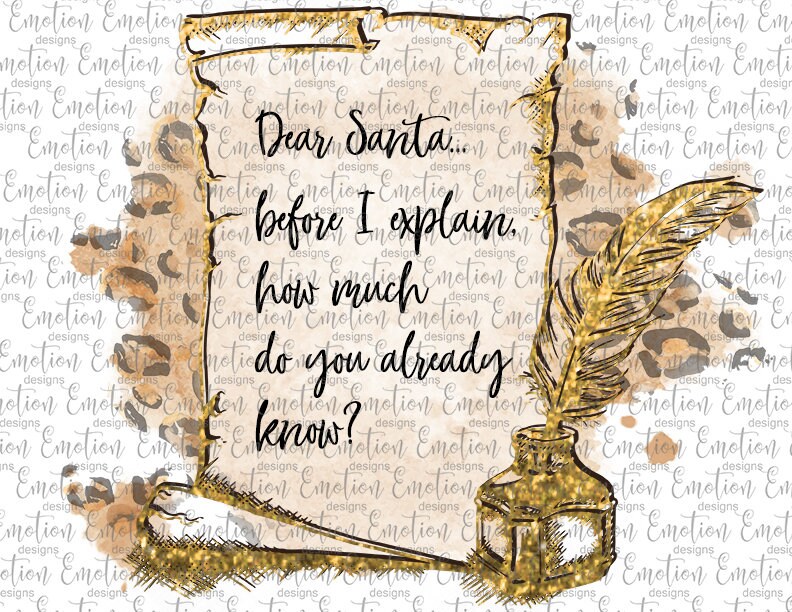 Dear Santa...
before I explain,
how much
do you already
know?
Emotion
designs